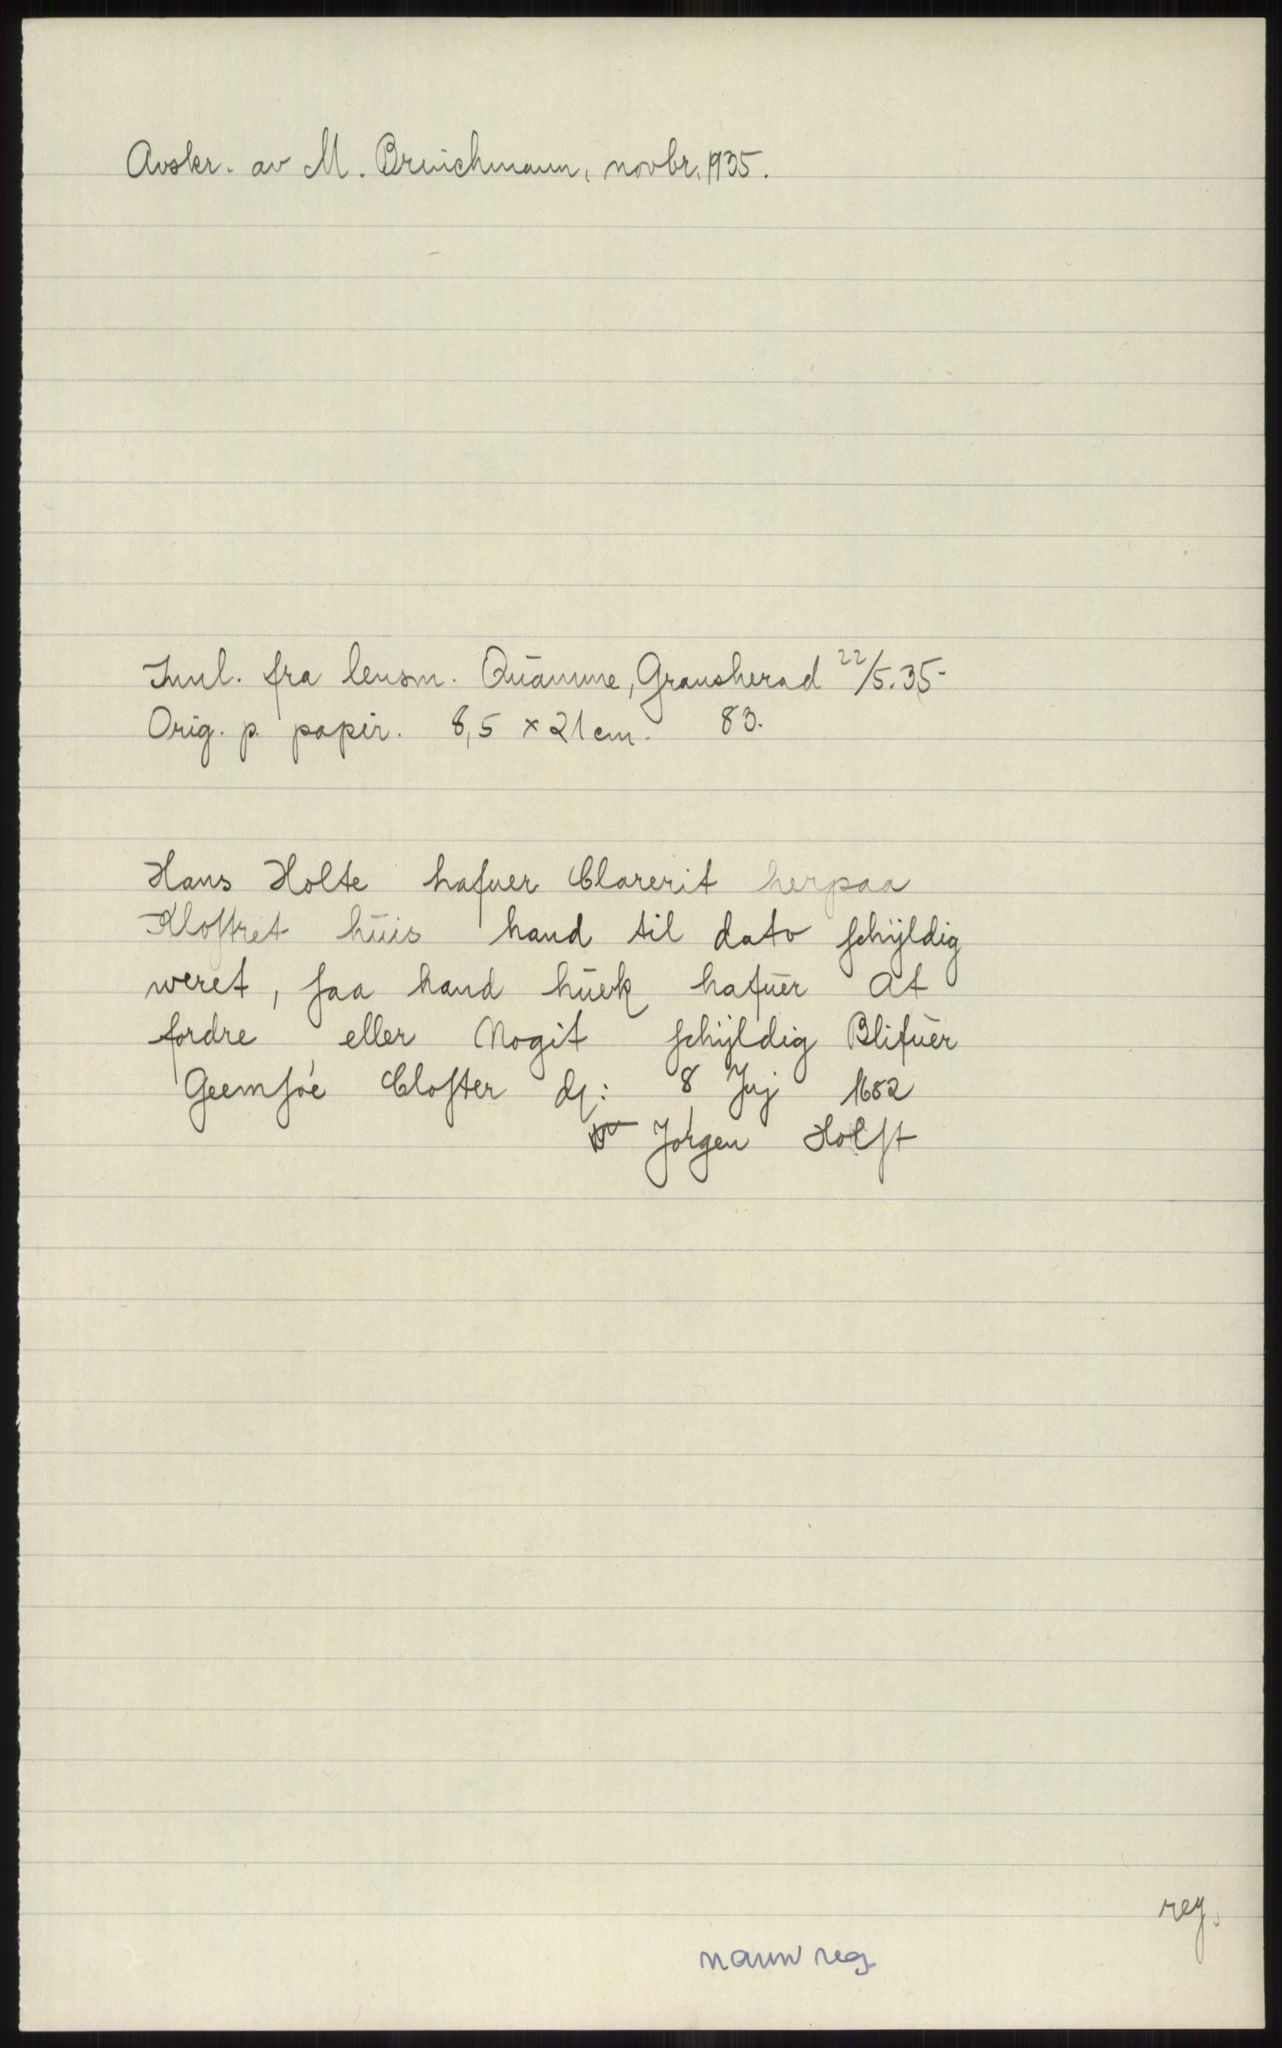 Avskr. av M. Bruichmann, novbr. 1935.
Innl. fra lensm. Quamme, Gransherad 22/5.35-
Orig. p. papir. 8,5 x 21 cm. 83.
Hans Holte hafuer Clarerit herpaa
Kloſtret huis hand til dato ſchÿldig
weret, ſaa hand huerk hafuer At
fordre eller Nogit ſchÿldig Blifuer
Geemſóe Cloſter dſ: 8 Juj 1682
Jórgen Holſt
reg.
navn reg.